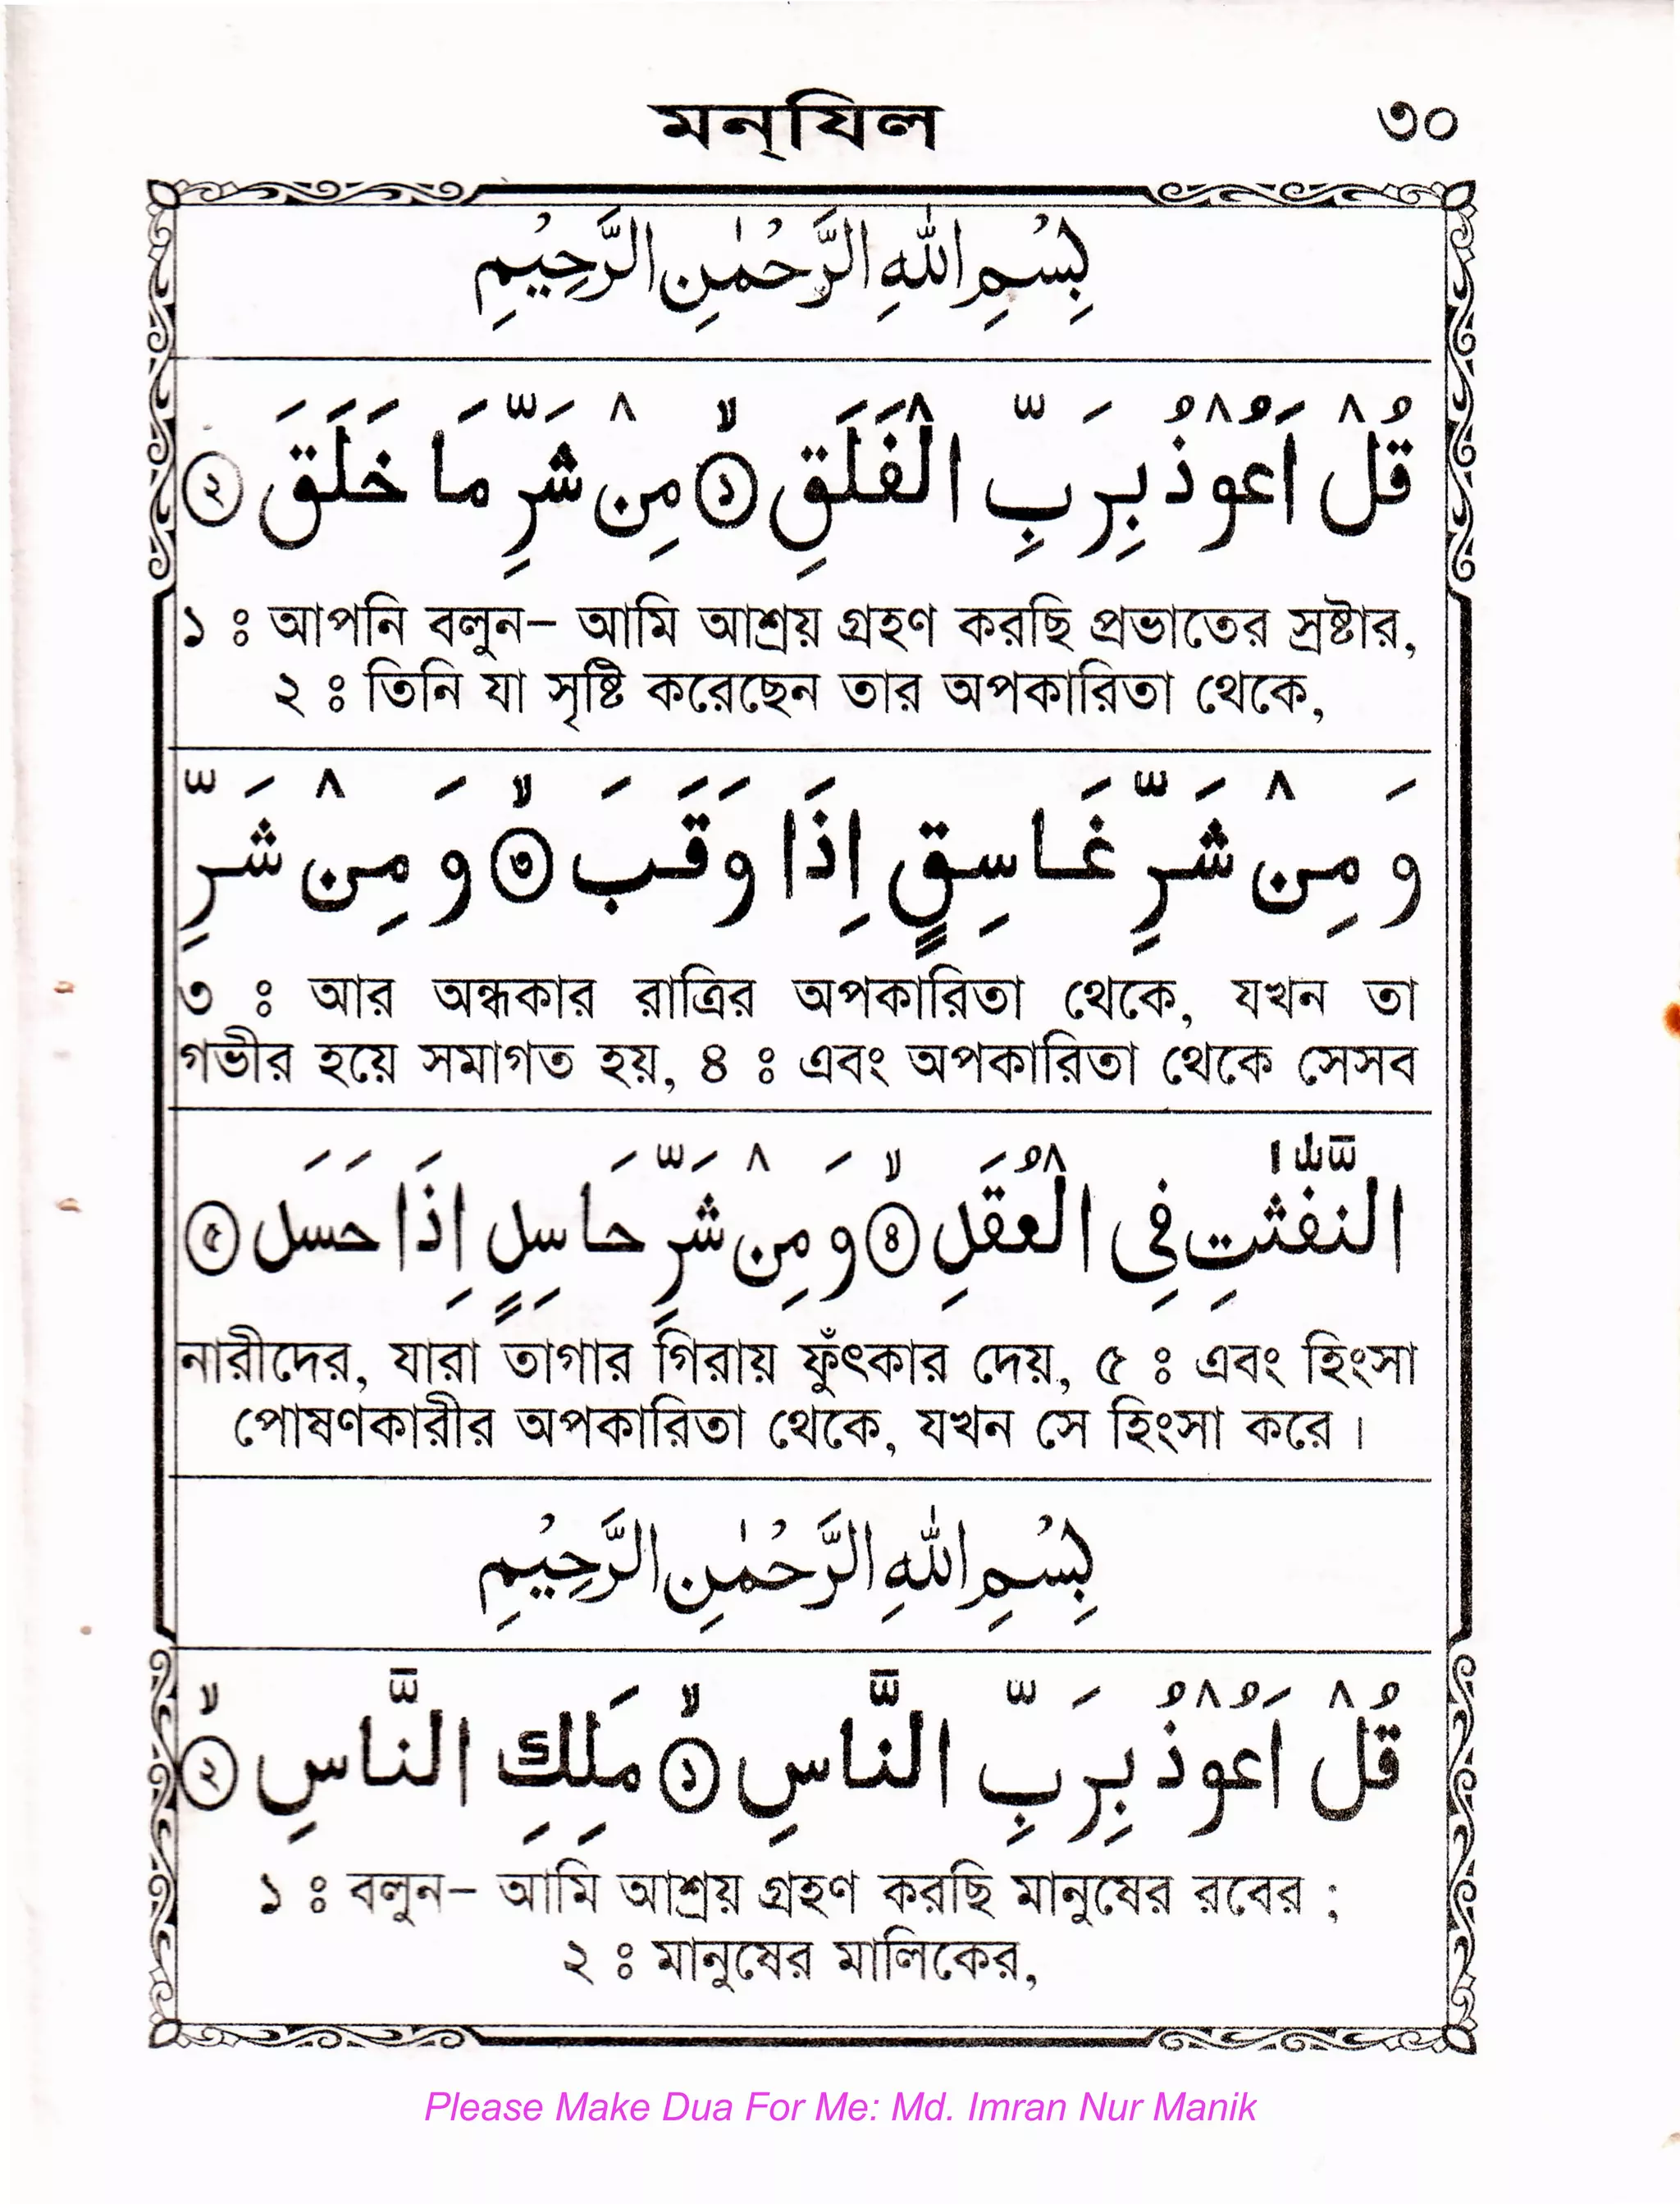 মন্‌যিল ৩০
بِسْمِ اللّٰهِ الرَّحْمٰنِ الرَّحِيْمِ
قُلْ اَعُوْذُ بِرَبِّ الْفَلَقِ ۙ﴿১﴾ مِنْ شَرِّ مَا خَلَقَ ﴿২﴾
১ ঃ আপনি বলুন– আমি আশ্রয় গ্রহণ করছি প্রভাতের স্রষ্টার,
২ ঃ তিনি যা সৃষ্টি করেছেন তার অপকারিতা থেকে,
وَ مِنْ شَرِّ غَاسِقٍ اِذَا وَقَبَ ۙ﴿৩﴾ وَ مِنْ شَرِّ
৩ ঃ আর অন্ধকার রাত্রির অপকারিতা থেকে, যখন তা
গভীর হয়ে সমাগত হয়, ৪ ঃ এবং অপকারিতা থেকে সেসব
النَّفّٰثٰتِ فِى الْعُقَدِ ۙ﴿৪﴾ وَ مِنْ شَرِّ حَاسِدٍ اِذَا حَسَدَ ﴿৫﴾
নারীদের, যারা তাগার গিরায় ফুঁৎকার দেয়, ৫ ঃ এবং হিংসা
পোষণকারীর অপকারিতা থেকে, যখন সে হিংসা করে ।
بِسْمِ اللّٰهِ الرَّحْمٰنِ الرَّحِيْمِ
قُلْ اَعُوْذُ بِرَبِّ النَّاسِ ۙ﴿১﴾ مَلِكِ النَّاسِ ۙ﴿২﴾
১ ঃ বলুন– আমি আশ্রয় গ্রহণ করছি মানুষের রবের ;
২ ঃ মানুষের মালিকের,
Please Make Dua For Me: Md. Imran Nur Manik